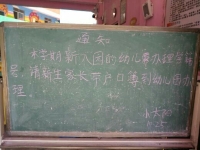 通知
本学期新入园的幼儿需办理学籍
号,请新生家长带户口等到幼儿园办
理。